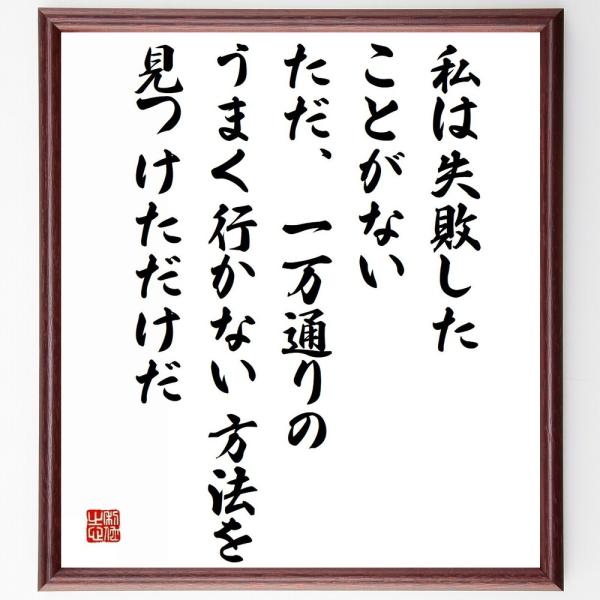 私は失敗した
ことがない
ただ、一万通りの
うまく行かない方法を
見つけただけだ